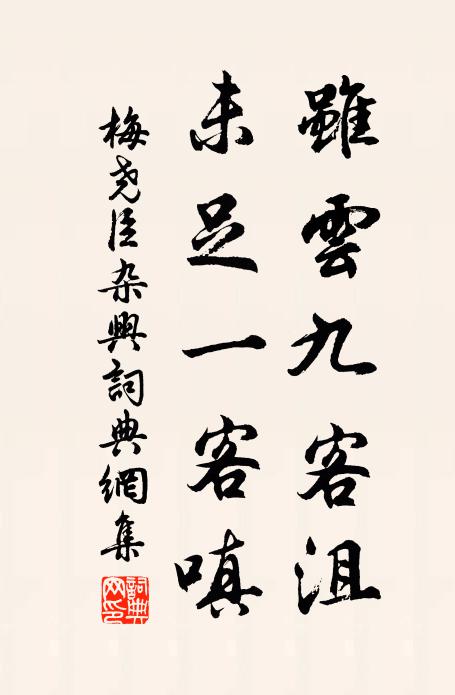 雖雲九客沮
未足一客嗔
梅尧臣杂興詞典網集
詞典網印